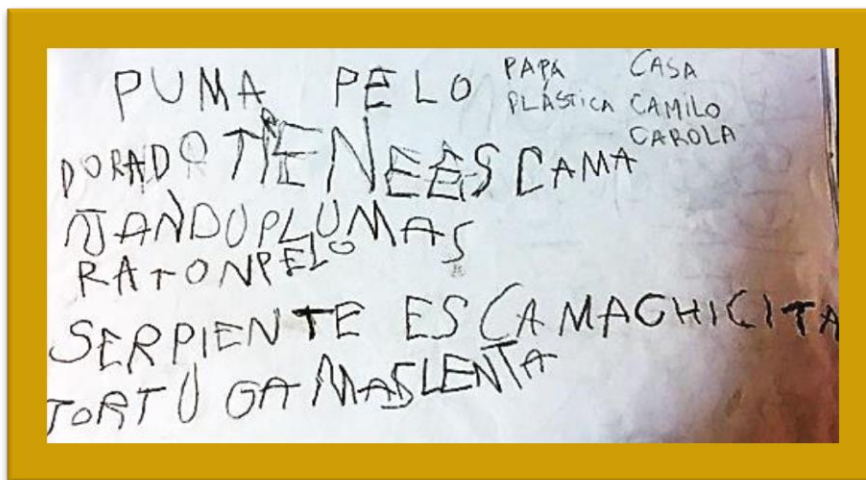 PUMA PELO
PAPÁ CASA
PLÁSTICA CAMILO
CAROLA
DORADO TIENEESCAMA
ÑANDUPLUMAS
RATONPELO
SERPIENTE ESCAMACHICITA
TORTUGA MASLENTA